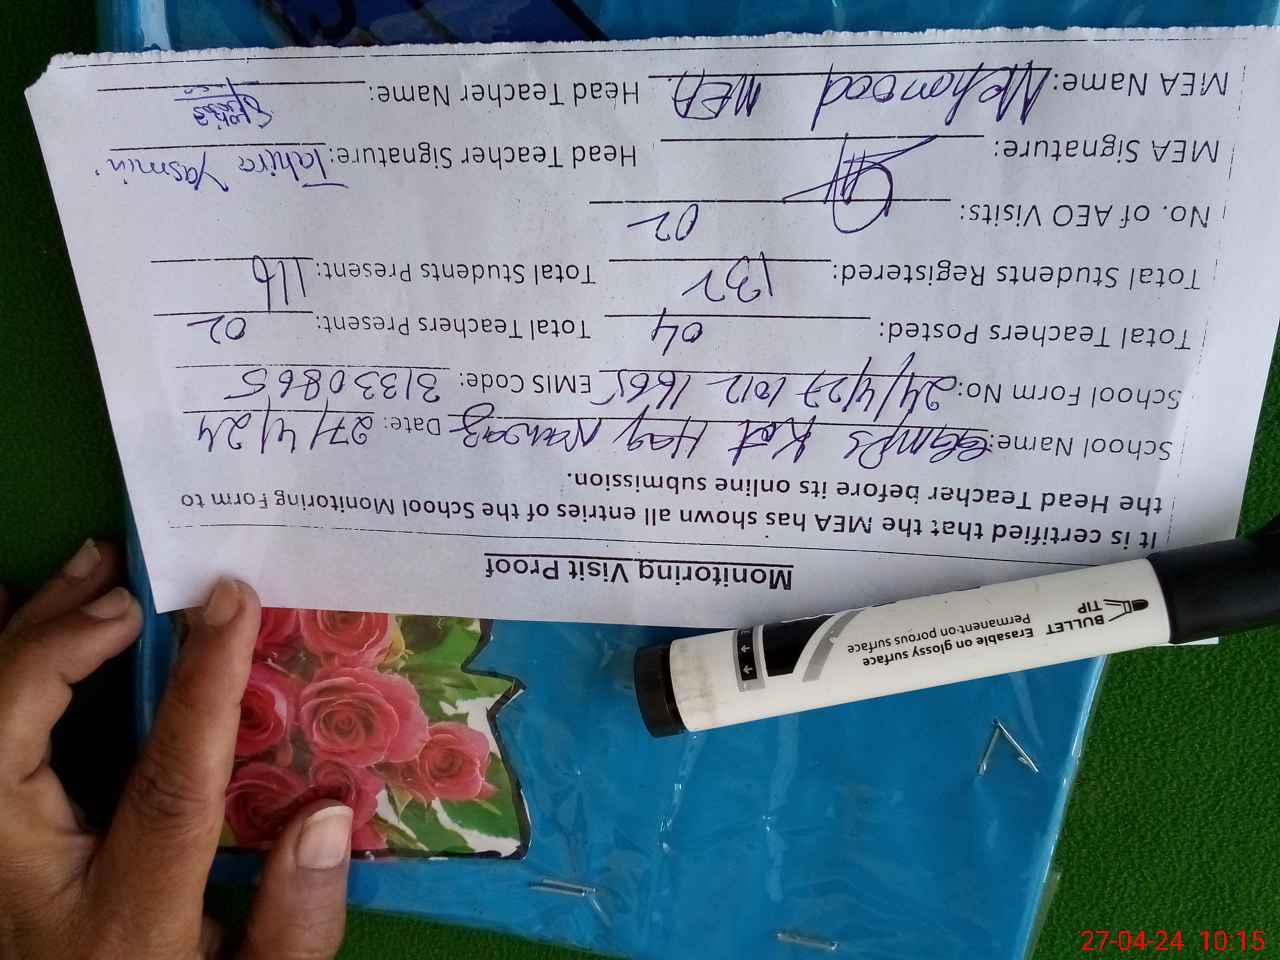 Monitoring Visit Proof
It is certified that the MEA has shown all entries of the School Monitoring Form to
the Head Teacher before its online submission.
School Name: GGMPS Kot Haq Nawaz Date: 27/4/24
School Form No: 24/4/27 1012 1665 EMIS Code: 31330865
Total Teachers Posted: 04 Total Teachers Present: 02
Total Students Registered: 132 Total Students Present: 116
No. of AEO Visits: 02
MEA Signature: Head Teacher Signature: Tahira Yasmin
MEA Name: MEA Head Teacher Name:
BULLET TIP
Erasable on glossy surface
Permanent on porous surface
27-04-24 10:15